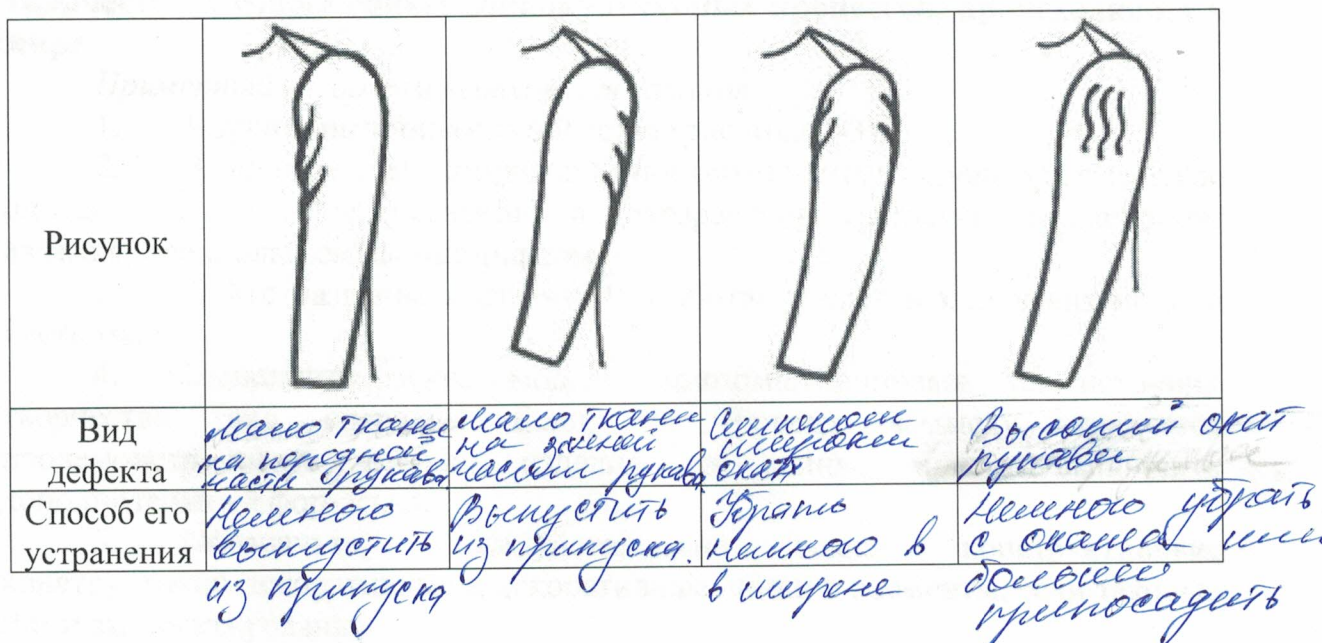 Рисунок
Вид
дефекта
Мало ткани
на передней
части рукава
Мало ткани
на задней
части рукава
Слишком
широкий
окат
Высокий окат
рукава
Способ его
устранения
Немного
выпустить
из припуска
Выпустить
из припуска.
Убрать
немного в
в ширене
Немного убрать
с оката или
больше
припосадить